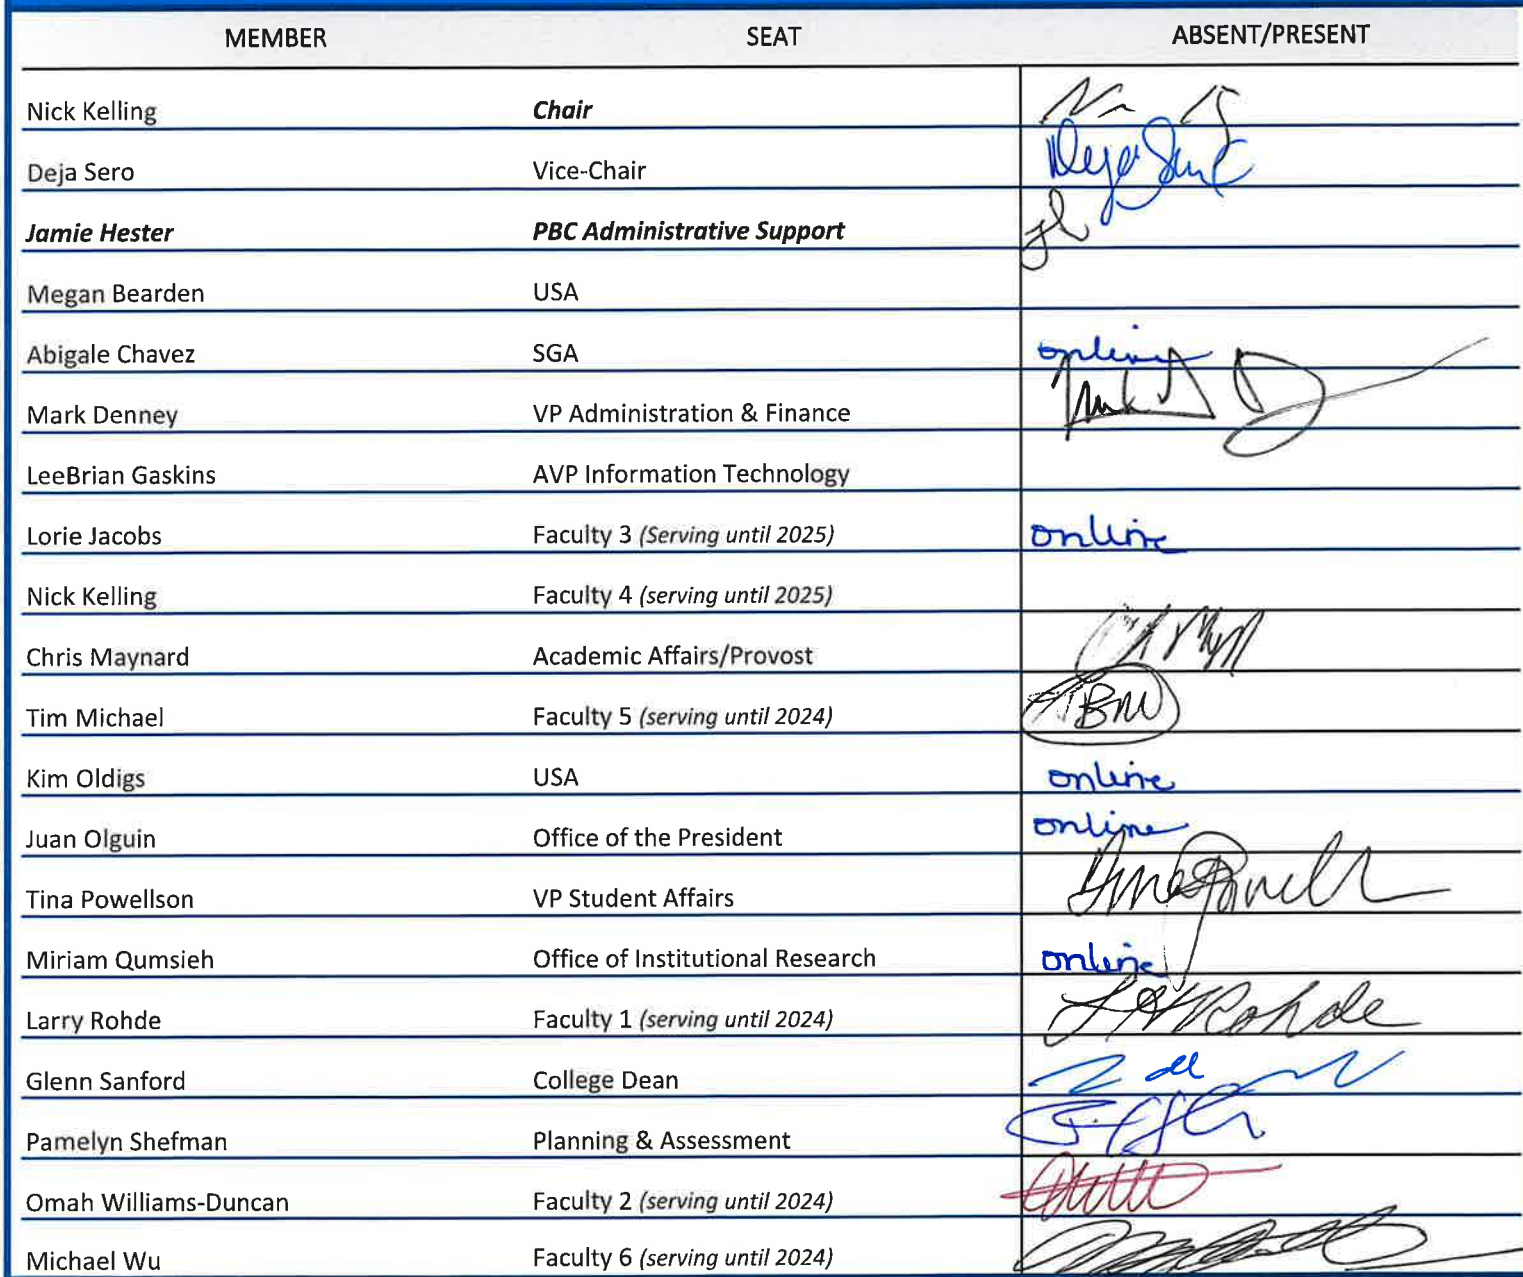 MEMBER SEAT ABSENT/PRESENT
Nick Kelling Chair
Deja Sero Vice-Chair Deja
Jamie Hester PBC Administrative Support jh
Megan Bearden USA
Abigale Chavez SGA online
Mark Denney VP Administration & Finance
LeeBrian Gaskins AVP Information Technology
Lorie Jacobs Faculty 3 (Serving until 2025) online
Nick Kelling Faculty 4 (serving until 2025)
Chris Maynard Academic Affairs/Provost
Tim Michael Faculty 5 (serving until 2024) TBM
Kim Oldigs USA online
Juan Olguin Office of the President online
Tina Powellson VP Student Affairs
Miriam Qumsieh Office of Institutional Research online
Larry Rohde Faculty 1 (serving until 2024) Rohde
Glenn Sanford College Dean
Pamelyn Shefman Planning & Assessment
Omah Williams-Duncan Faculty 2 (serving until 2024)
Michael Wu Faculty 6 (serving until 2024)